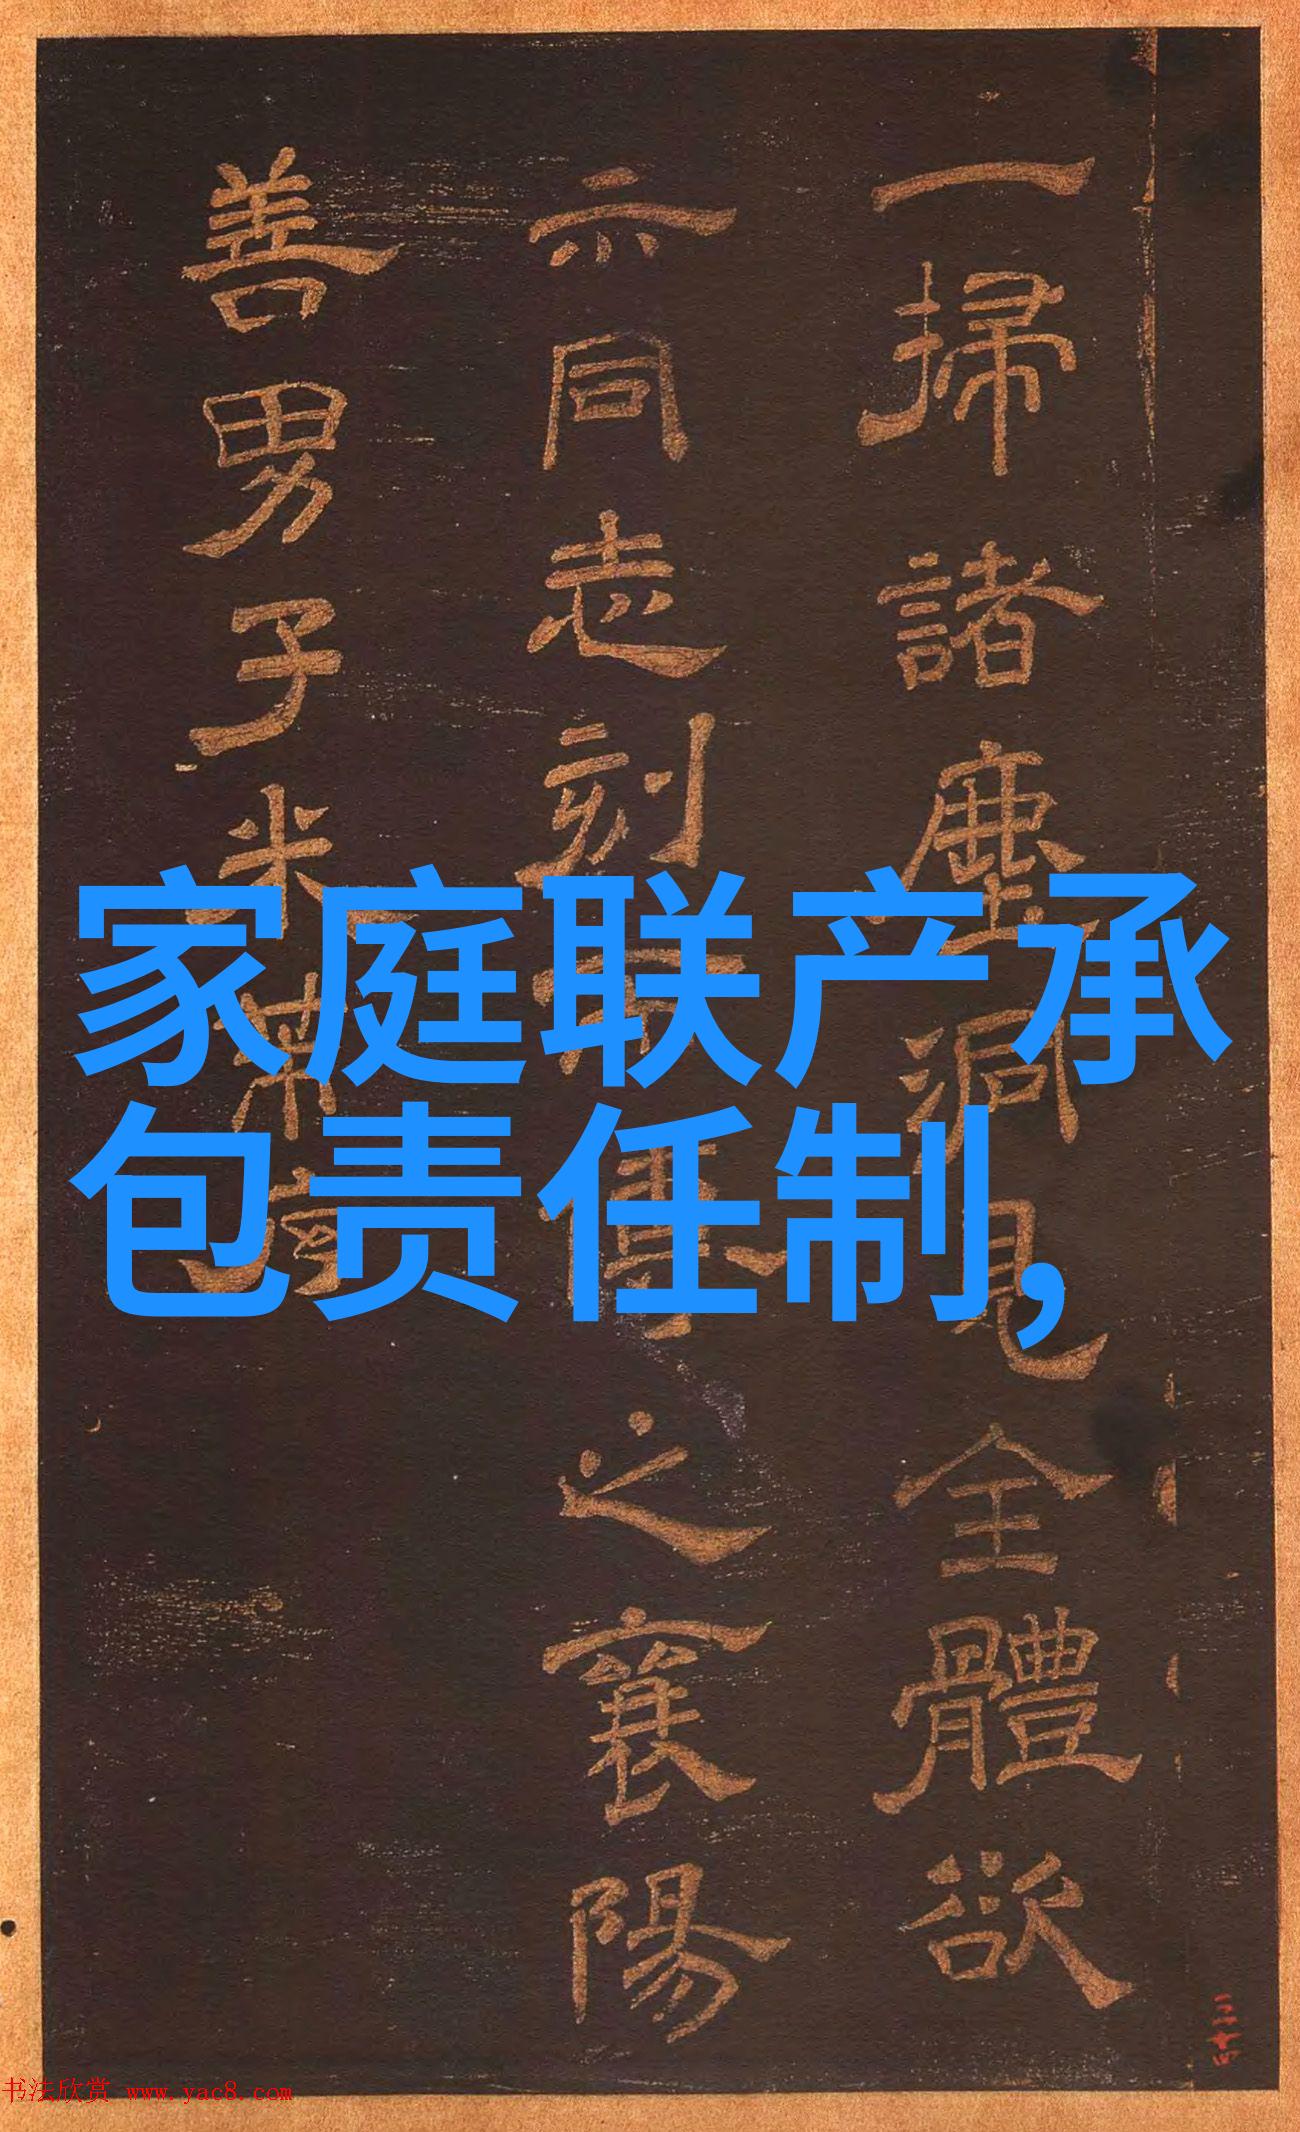 一掃諸塵洞見全體欲
示同志刻而傳之襄陽
善男子米芾
家庭联产承
包责任制,
三十四
书法欣赏 www.yac8.com